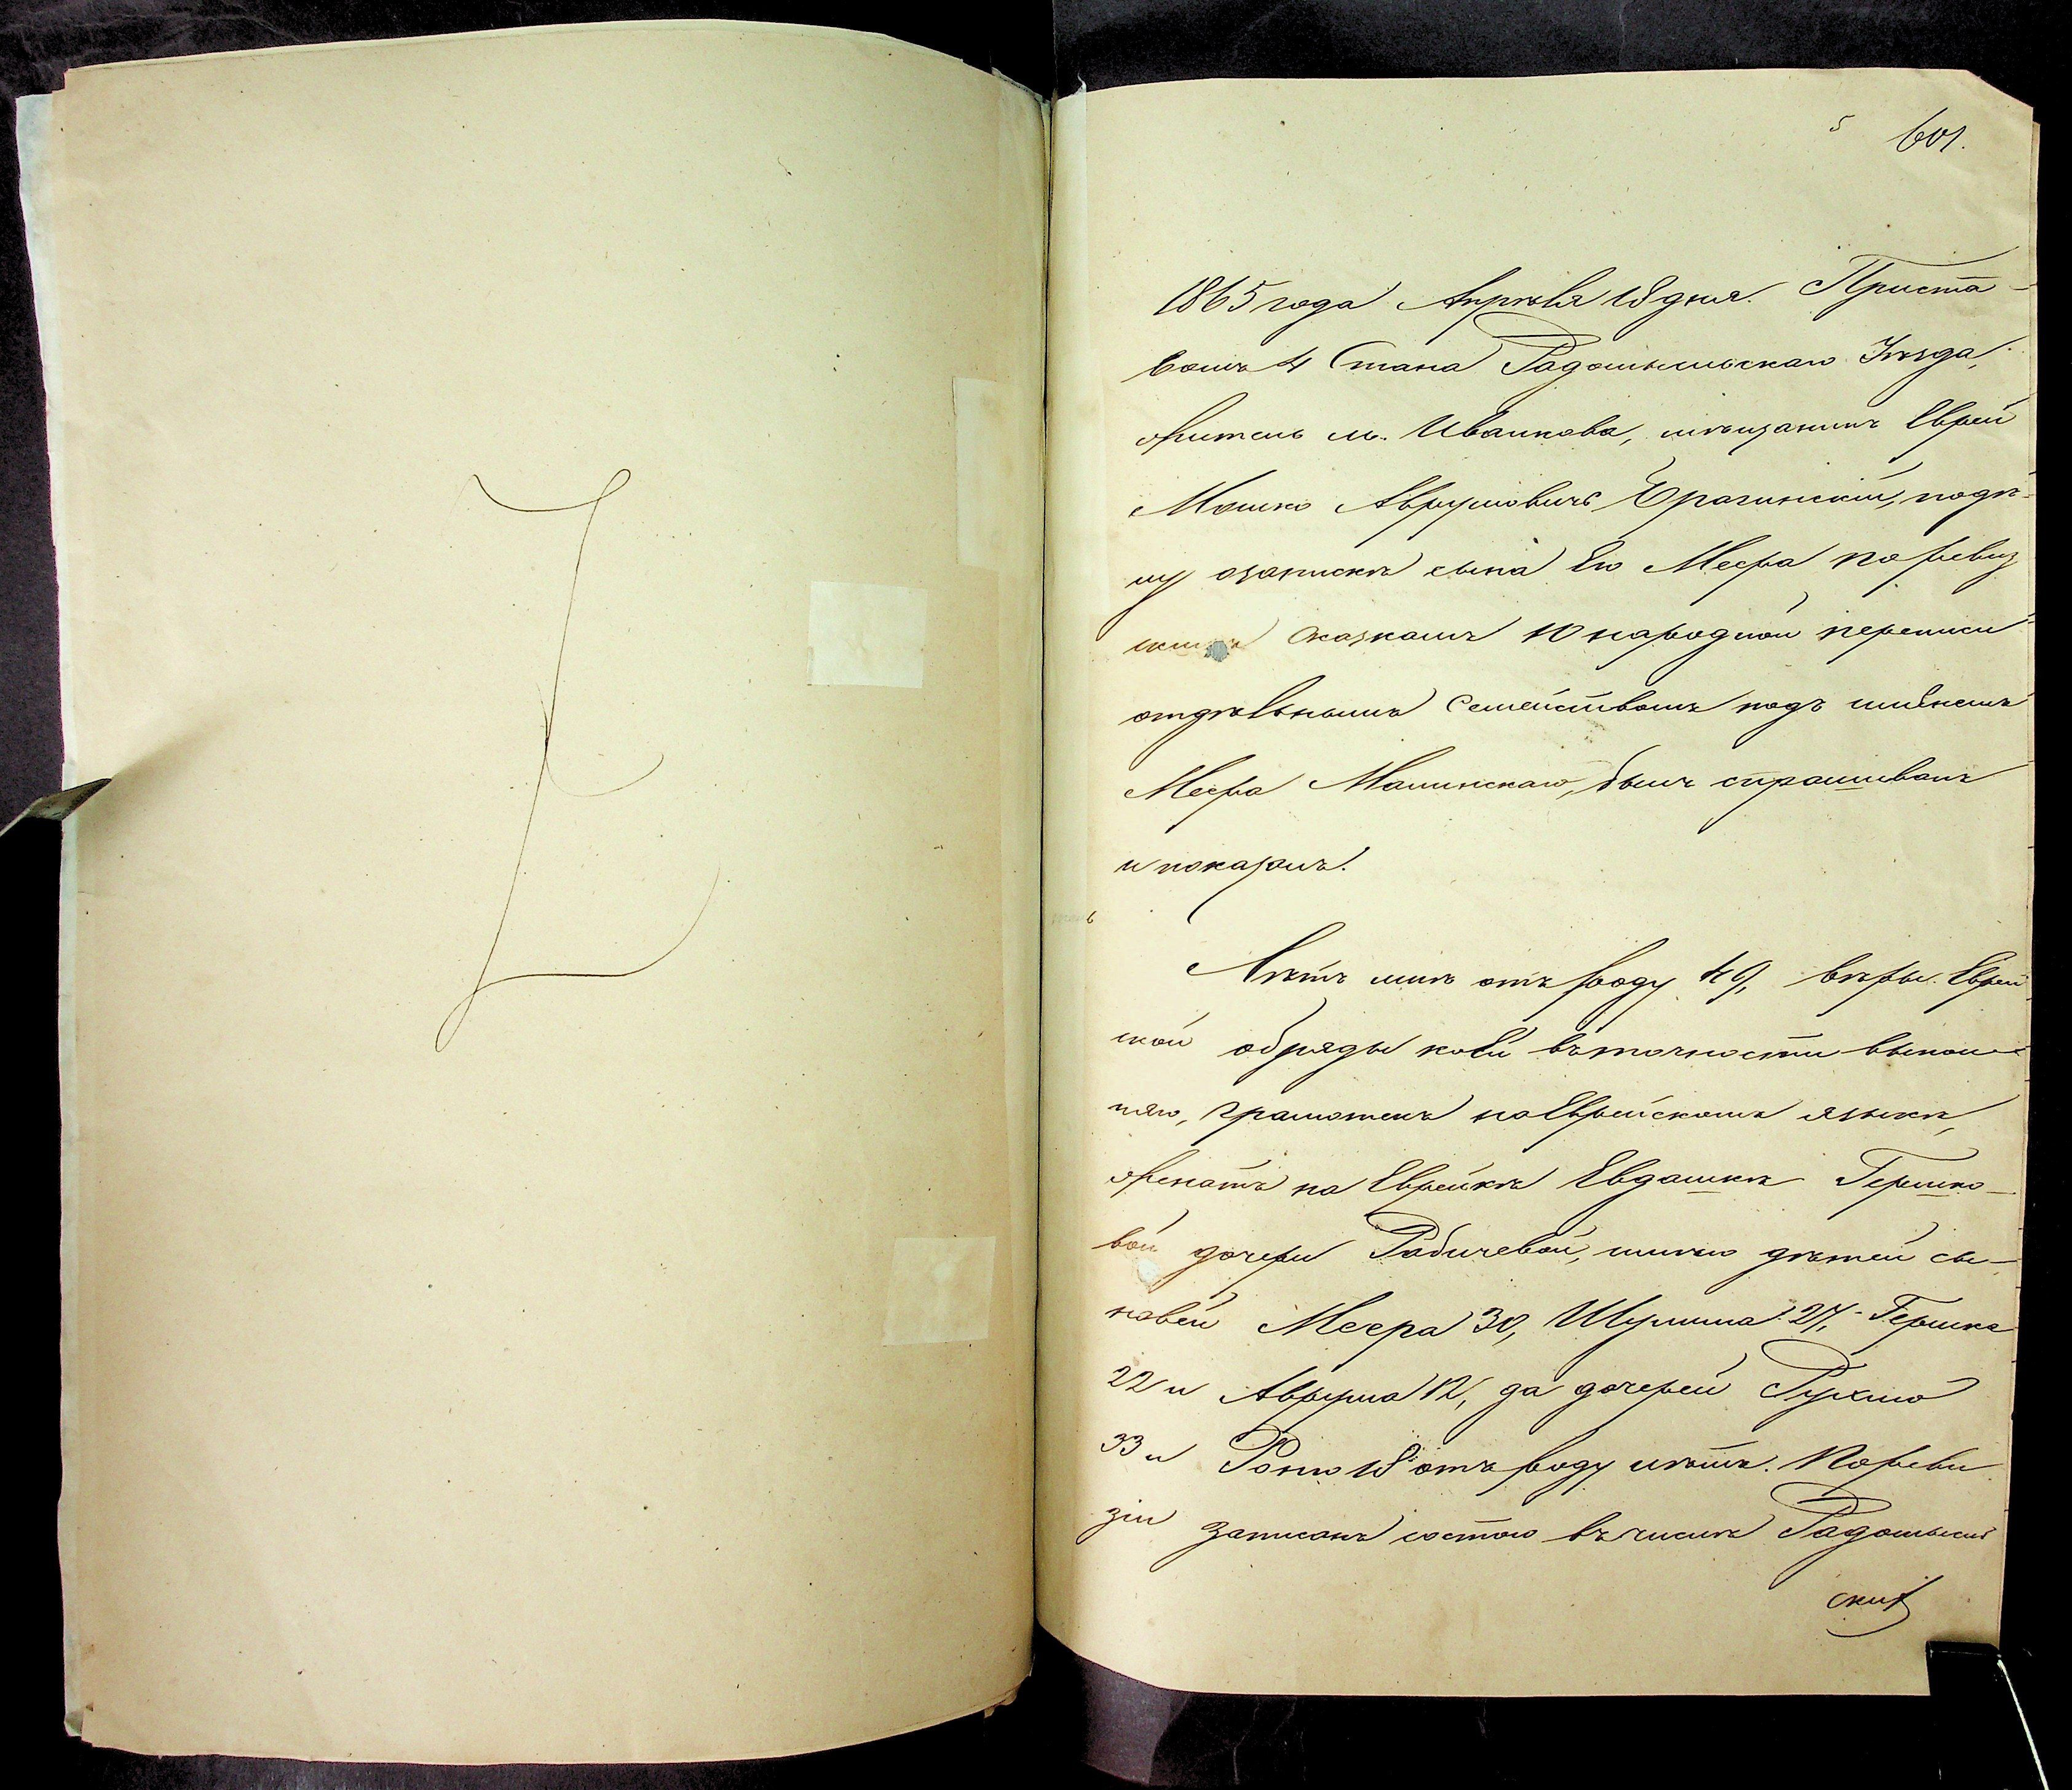 5 601.
1865 года Апрѣля 18 дня. Приста-
вомъ 4 Стана Радомысльскаго Уѣзда,
житель м. Иванкова, мѣщанинъ Еврей
Мошко Аврумовичъ Брагинскій, по дѣ-
лу о запискѣ сына Его Меера по ревиз
скимъ сказкамъ 10 народной переписи
отдѣльнымъ Семействомъ подъ именемъ
Меера Малинскаго, былъ спрашиванъ
и показалъ:
Лѣтъ мнѣ отъ роду 49, вѣры Еврей
ской обряды коей въ точности выпол-
няю, грамотенъ на Еврейскомъ языкѣ,
женатъ на Еврейкѣ Евдашкѣ Гершко-
вой дочери Рабичевой, имѣю дѣтей сы-
новей Меера 30, Шулима 27, Гершка
22 и Аврума 12, да дочерей Рухлю
33 и Роню 18 отъ роду лѣтъ. По реви
зіи записанъ состою въ числѣ Радомысль
скихъ